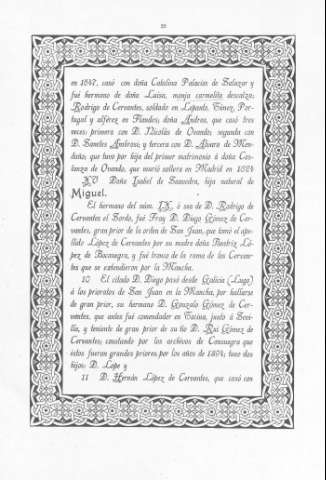 22
en 1647, casó con doña Catalina Palacios de Salazar y
fué hermano de doña Luisa, monja carmelita descalza;
Rodrigo de Cervantes, soldado en Lepanto, Túnez, Por-
tugal y alférez en Flandes; doña Andrea, que casó tres
veces: primera con D. Nicolás de Ovando; segunda con
D. Santes Ambrosi; y tercera con D. Alvaro de Men-
daño; que tuvo por hija del primer matrimonio á doña Cos-
tanza de Ovando, que murió soltera en Madrid en 1624
XV Doña Isabel de Saavedra, hija natural de
Miguel.
El hermano del núm. IX, ó sea de D. Rodrigo de
Cervantes el Sordo, fué Fray D. Diego Gómez de Cer-
vantes, gran prior de la orden de San Juan, que tomó el ape-
llido López de Cervantes por su madre doña Beatriz Ló-
pez de Bocanegra, y fué tronco de la rama de los Cervan-
tes que se extendieron por la Mancha.
10 El citado D. Diego pasó desde Galicia (Lugo)
á los prioratos de San Juan en la Mancha, por hallarse
de gran prior, su hermano D. Gonzalo Gómez de Cer-
vantes, que antes fué comendador en Tocina, junto á Sevi-
lla, y teniente de gran prior de su tío D. Rui Gómez de
Cervantes; constando por los archivos de Consuegra que
éstos fueron grandes priores por los años de 1404; tuvo dos
hijos: D. Lope y
11 D. Hernán López de Cervantes, que casó con